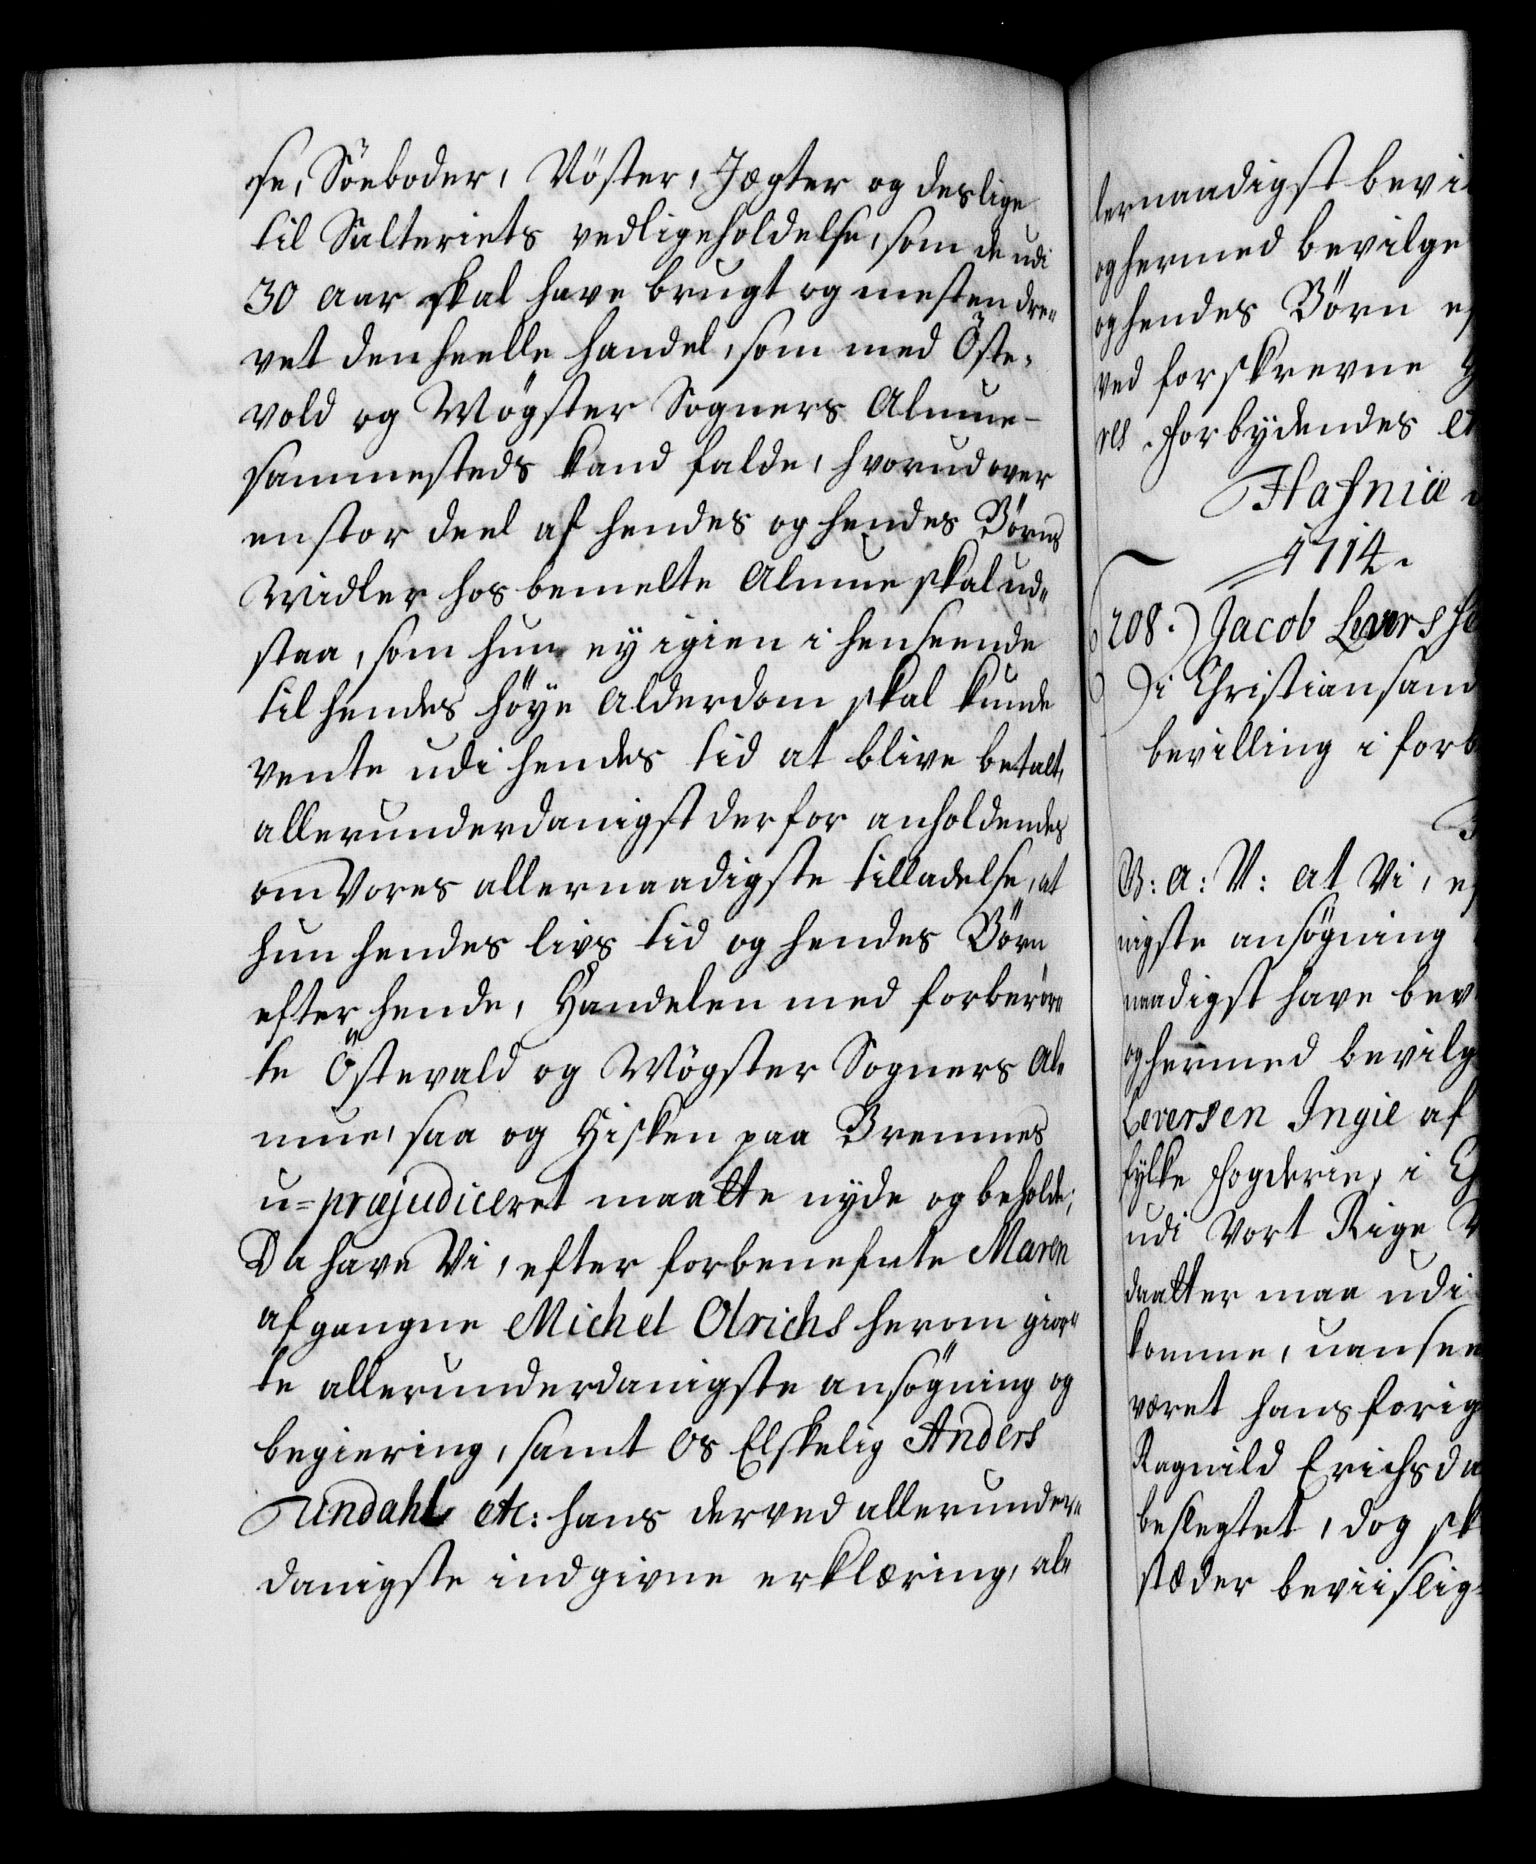 se, Söeboder, Nöster, Jægter og deslige
til Salteriets vedligeholdelse, som de udi
30 aar skal have brugt og mesten dre-
vet den heelle handel, som med Öste-
vold og Møgster Sogners Almue-
sammesteds kand falde, hvorudover
en stor deel af hendes og hendes Børns
Midler hos bemelte Almue skal ud-
staa, som hun ey igien i henseende
til hendes höye Alderdom skal kunde
vente udi hendes tid at blive betalt,
allerunderdanigst derfor anholdendes
om Vores allernaadigste tilladelse, at
hun hendes livs tid og hendes Börn
efter hende, Handelen med forberør-
te Östevald og Møgster Sogners Al-
mue, saa og Hisken paa Bremnes
u-præjudiceret maatte nyde og beholde;
Da have Vi, efter forbenefnte Maren
afgangne Michel Olrichs herom gior-
te allerunderdanigste ansögning og
begiering, samt Os Elskelig Anders
Undahl etc: hans derved allerunder-
danigste indgivne erklæring, al-
lernaadigst bevi
og hermed bevilge
og hendes Børn ef
ved forskrevne
res. Forbydendes et
Hafniæ
1714.
208.) Jacob Levers
i Christiansand
bevilling i forb
G: A: V: at Vi, ef
nigste ansögning
naadigst have bev
og hermed bevilg
Leversen Ingie af
fylke Fogderie, i
udi Vort Rige N
daatter maa udi
komme, uansee
været hans forig
Ragnild Erichsda
beslegtet, dog sk
stæder beviislig-